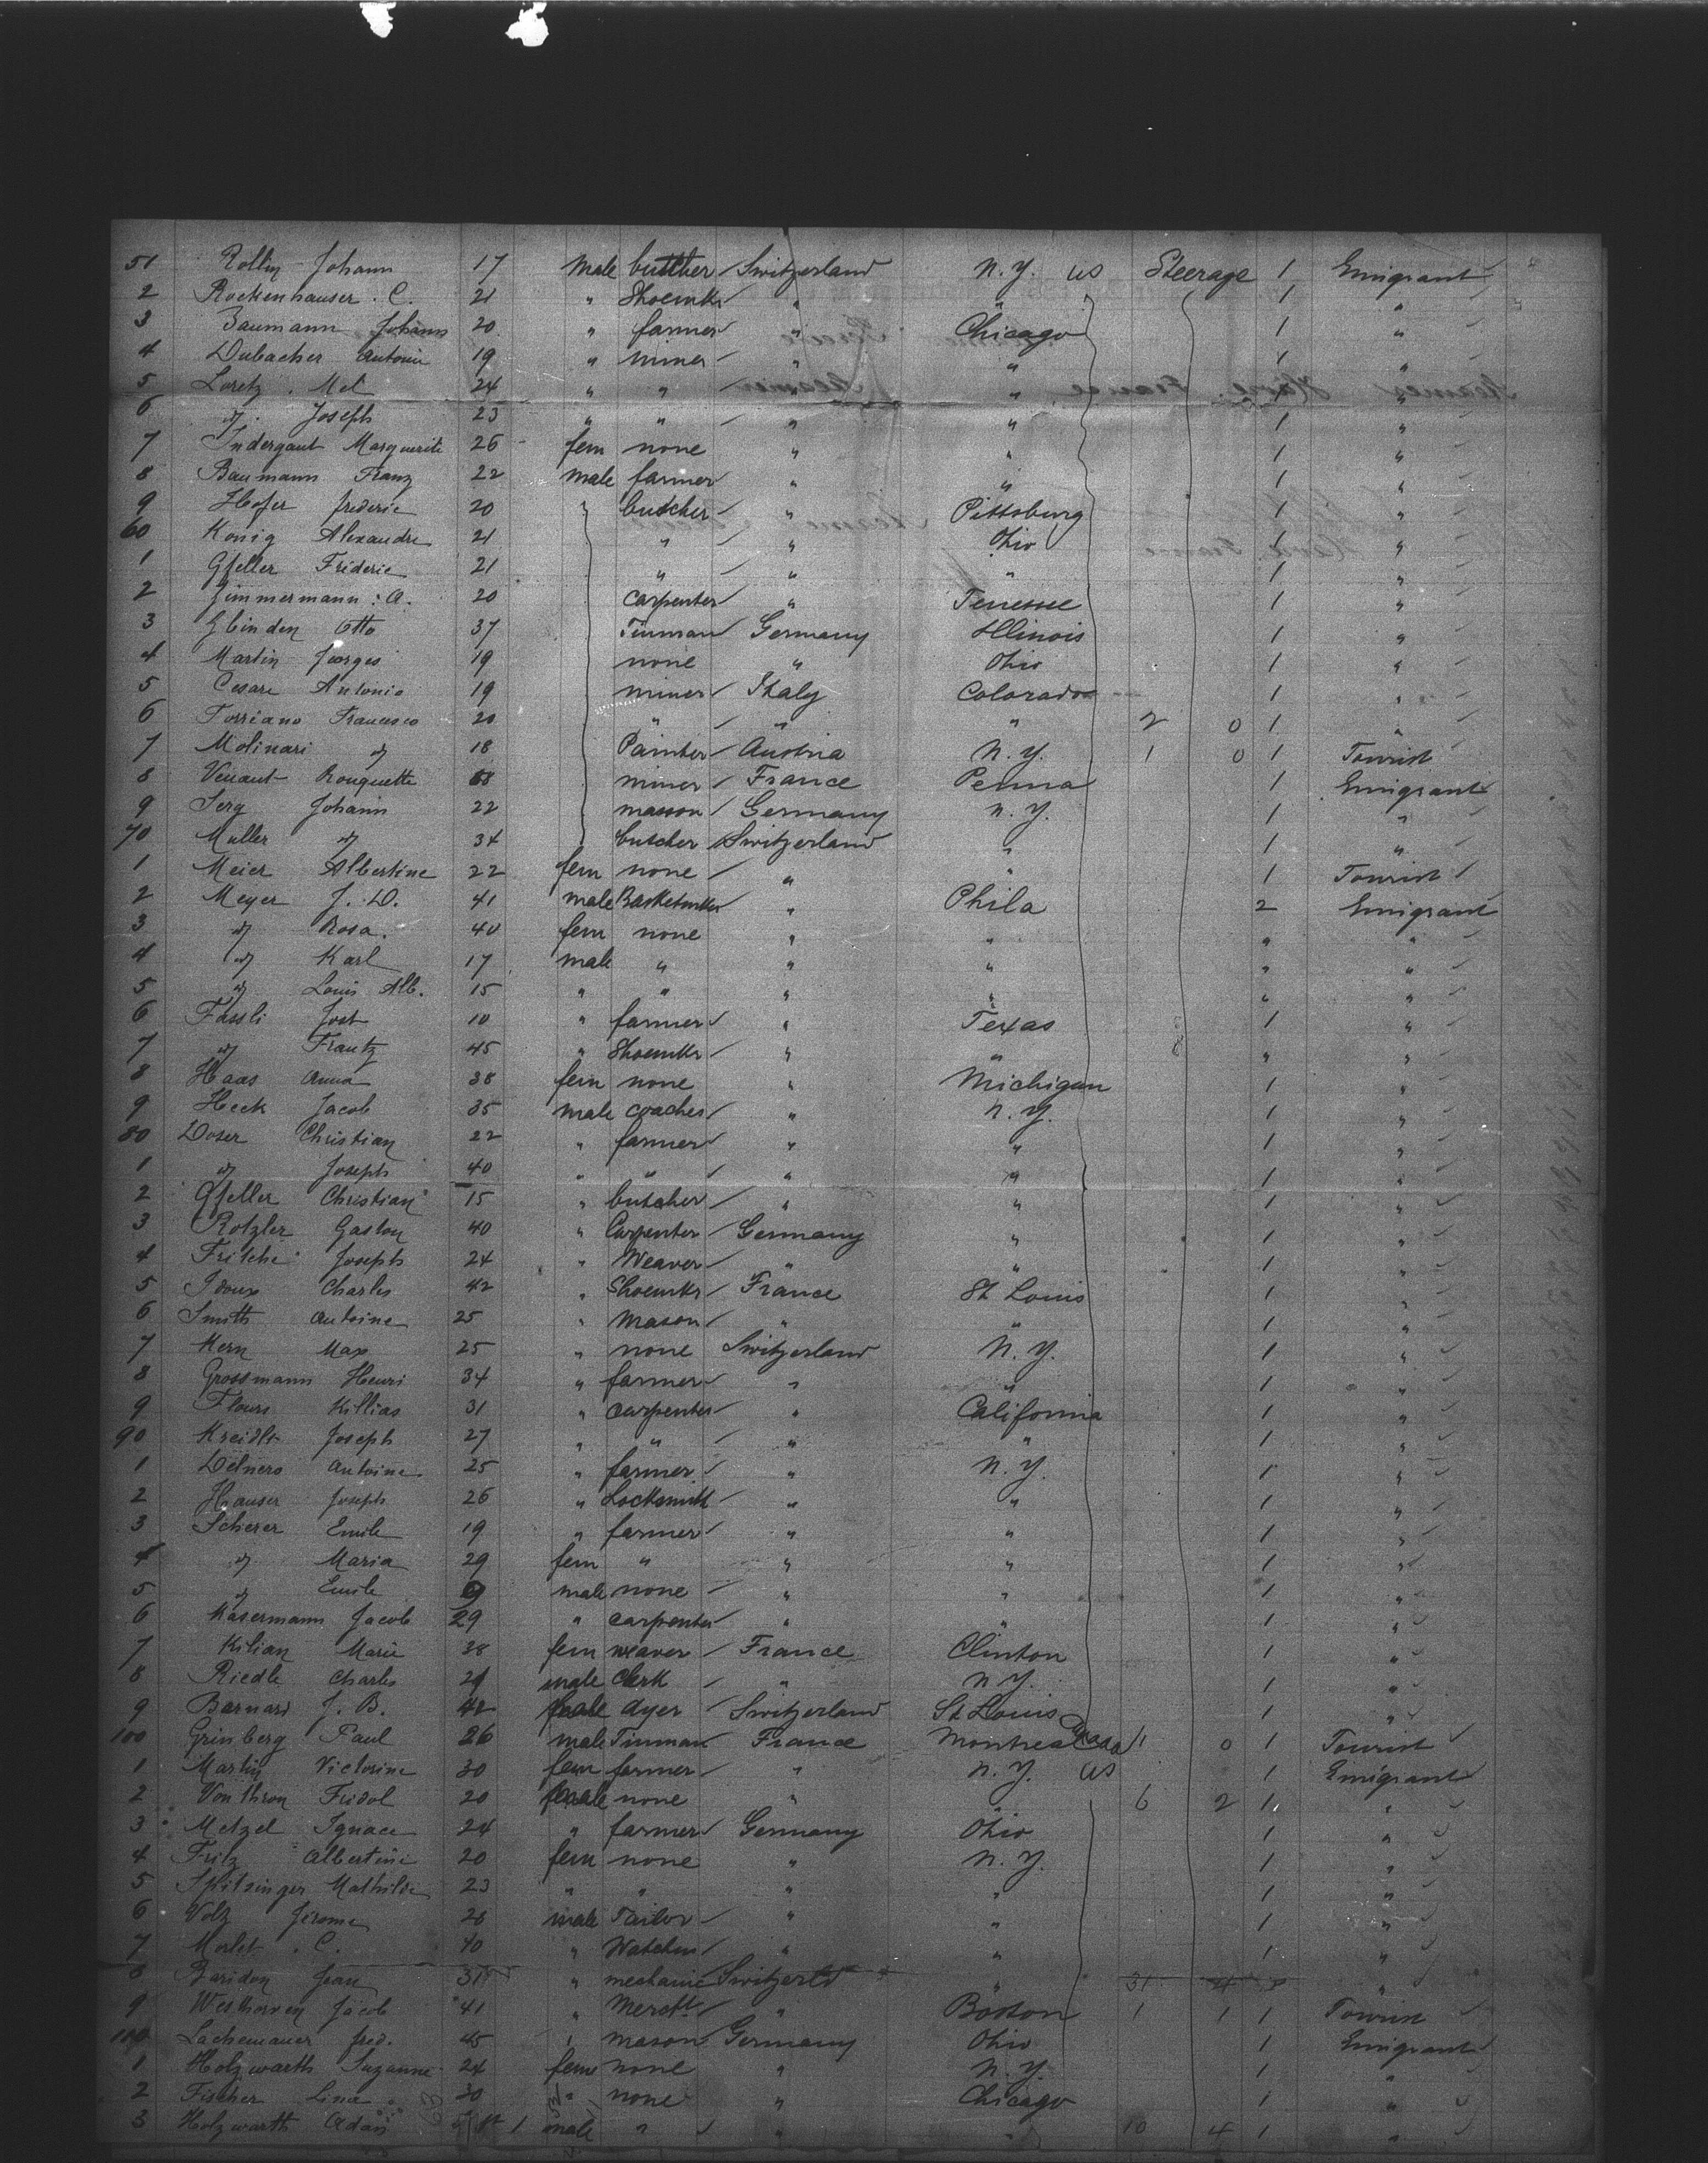 51 Rollin Johann 17 male butcher Switzerland N.Y. US Steerage 1 Emigrant
2 Rockenhauser . C. 21 " Shoemkr " " 1 "
3 Baumann Johann 20 " farmer " Chicago 1 "
4 Dubacher Antonin 19 " miner " " 1 "
5 Loretz . Mel 24 " " " " 1 "
6 dj. Joseph 23 " " " " 1 "
7 Indergaut Marguerite 26 fem none " " 1 "
8 Baumann Franz 22 male farmer " " 1 "
9 Hofer frederic 20 butcher " Pittsburg 1 "
60 Konig Alexandre 21 " " Ohio 1 "
1 Gfeller Frideric 21 " " " 1 "
2 Zimmermann : A. 20 carpenter " Tenessee 1 "
3 Glinden Otto 37 Tinman Germany Illinois 1 "
4 Martin Georges 19 none " Ohio 1 "
5 Cesare Antonio 19 miner Italy Colorado 1 "
6 Torriano Francesco 20 " " " 2 0 1 "
7 Molinari dj 18 Painter Austria N.Y. 1 0 1 Tourist
8 Venant Rouquette miner France Penna 1 Emigrant
9 Serg Johann 22 masson Germany N.Y. 1 "
70 Muller dj 34 butcher Switzerland " 1 "
1 Meier Albertine 22 fem none " " 1 Tourist
2 Meyer J. D. 41 male Basketmkr " Phila 2 Emigrant
3 dj Rosa. 40 fem none " " " "
4 dj Karl 17 male " " " " "
5 dj Louis Alb. 15 " " " " " "
6 Fassli Jost 10 " farmer " Texas 1 "
7 dj Frantz 45 " Shoemkr " " " "
8 Haas Anna 38 fem none " Michigan 1 "
9 Heck Jacob 35 male coacher " N.Y. 1 "
80 Doser Christian 22 " farmer " " 1 "
1 dj Joseph 40 " " " " 1 "
2 Gfeller Christian 15 " butcher " " 1 "
3 Rotzler Gaston 40 " Carpenter Germany " 1 "
4 Fritchi Joseph 24 " Weaver " " 1 "
5 Idoux Charles 42 " Shoemkr France St Louis 1 "
6 Smith Antoine 25 " Mason " " 1 "
7 Kern Max 25 " none Switzerland N.Y. 1 "
8 Grossmann Henri 34 " farmer " " 1 "
9 Flours Killias 31 " carpenter " California 1 "
90 Kreidler Joseph 27 " " " " 1 "
1 Delnero Antoine 25 " farmer " N.Y. 1 "
2 Hauser Joseph 26 " Locksmith " " 1 "
3 Scherer Emile 19 " farmer " " 1 "
4 dj. Maria 29 fem " " " 1 "
5 dj Emile 9 male none " " 1 "
6 Kasermann Jacob 29 " carpenter " " 1 "
7 Kilian Marie 38 fem weaver France Clinton 1 "
8 Riedle Charles male Clerk " N.Y. 1 "
9 Barnard J. B. 42 dyer Switzerland St Louis 1 "
100 Grinberg Paul 26 male Tinman France Montreal 1 0 1 Tourist
1 Martin Victorine 30 fem farmer " N.Y. US 1 Emigrant
2 Vonthron Fridol 20 none " " 6 2 1 "
3 Metzel Ignace 24 " farmer Germany Ohio 1 "
4 Fritz Albertine 20 fem none " N.Y. 1 "
5 Spitzinger Mathilde 23 " " " " 1 "
6 Volz Jerome 28 male Tailor " " 1 "
7 Morlet . C. 40 " " " 1 "
8 Baridon Jean 31 " mechanic Switzerld " 31 4 "
9 Westhoven Jacob 41 " Mercht " Boston 1 1 1 Tourist
Lachemauer fred. 45 " mason Germany Ohio 1 Emigrant
1 Holzwarth Suzanne 24 fem none " N.Y. 1 "
2 Fischer Lina 30 " none " Chicago 1 "
3 Holzwarth Adam male " " " 10 4 1 "